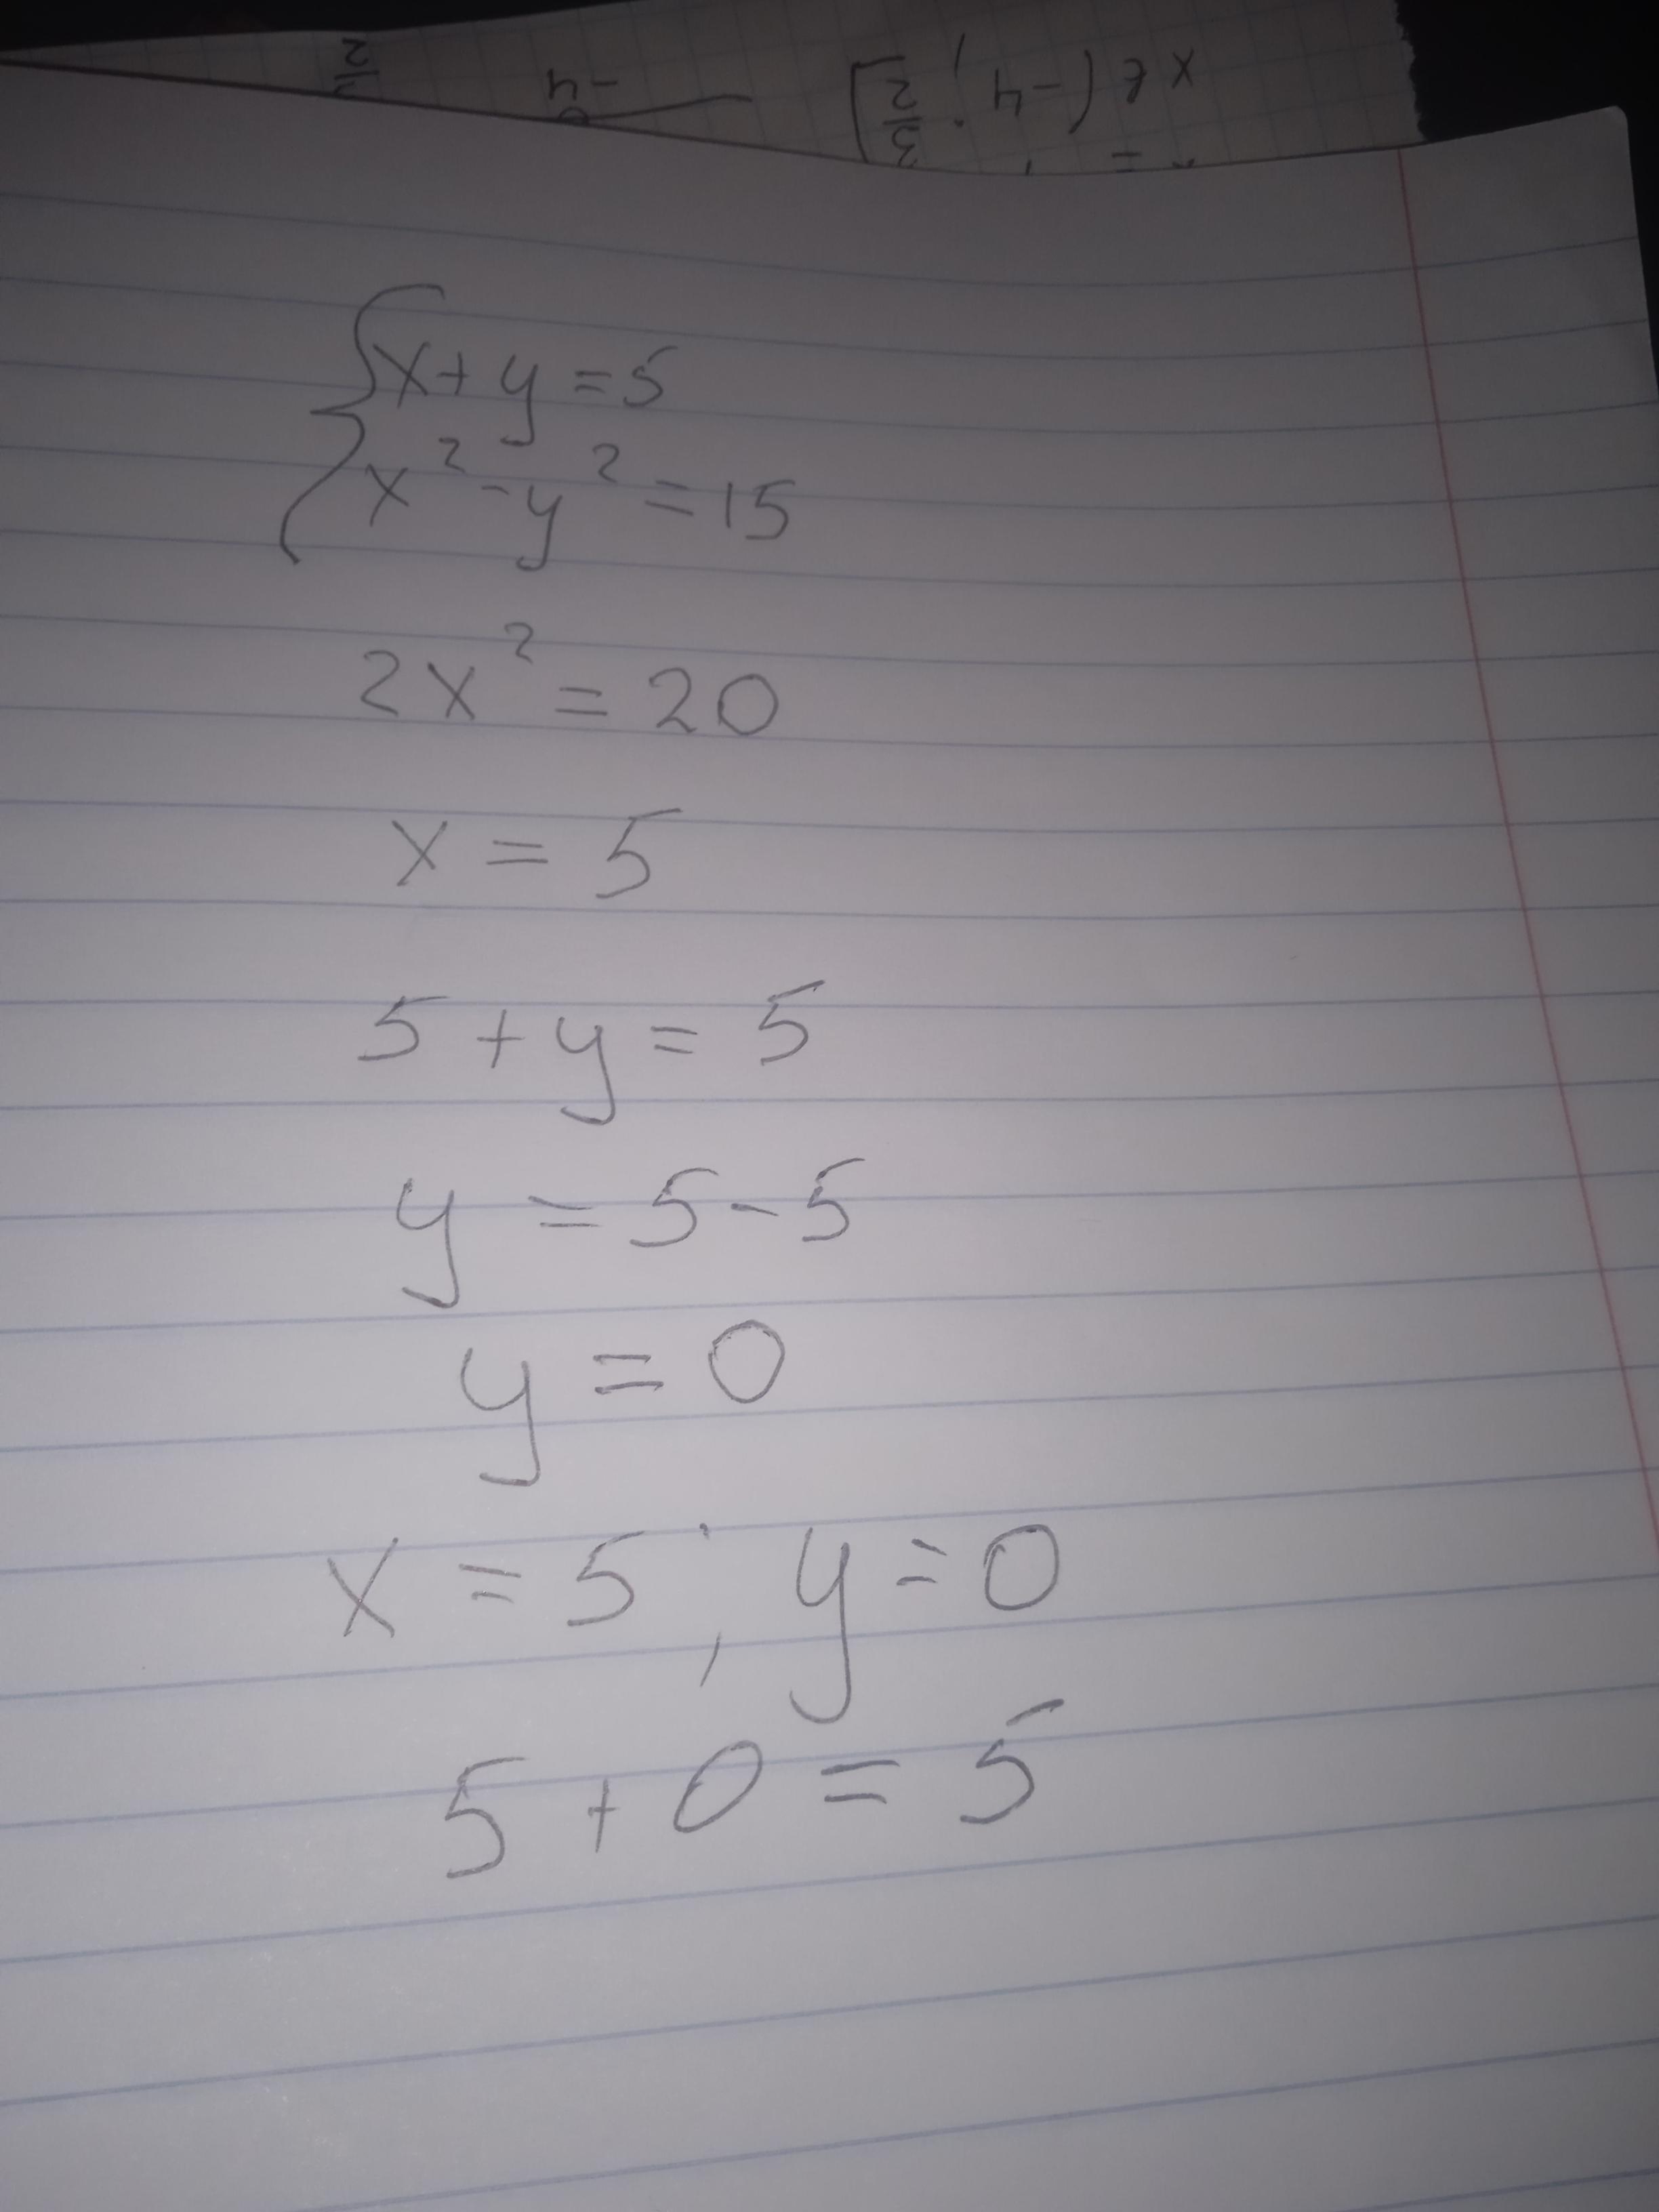 x ∈ (-4; 3/2]
-4
x + y = 5
x² - y² = 15
2x² = 20
x = 5
5 + y = 5
y = 5 - 5
y = 0
x = 5 ; y = 0
5 + 0 = 5